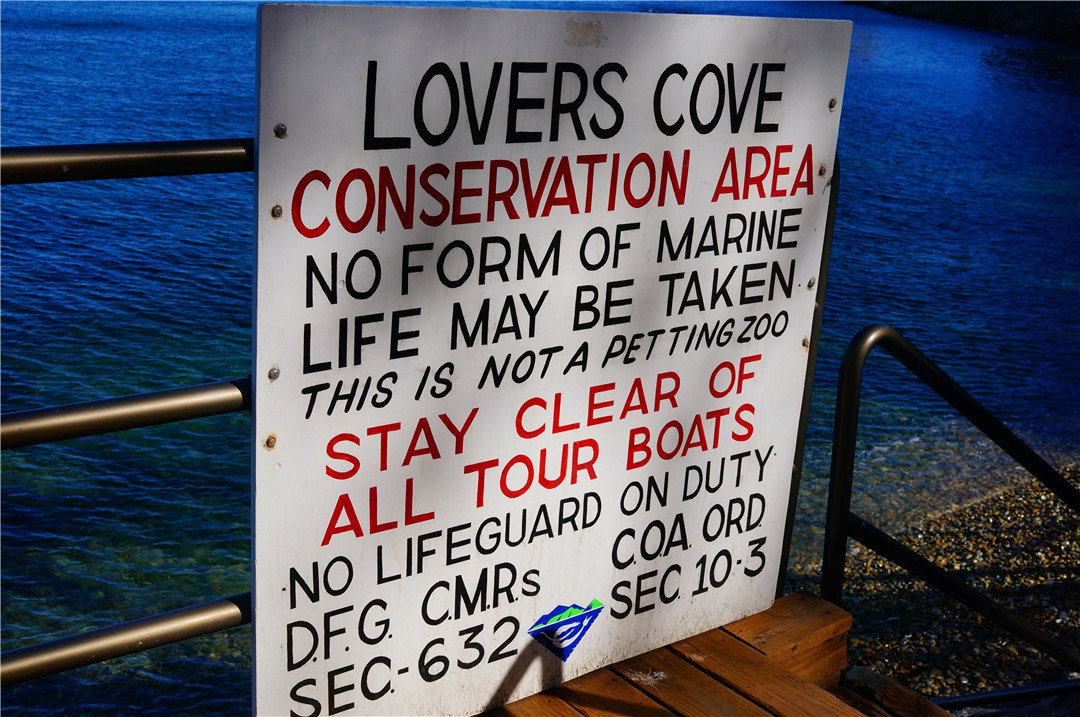 LOVERS COVE
CONSERVATION AREA
NO FORM OF MARINE
LIFE MAY BE TAKEN
THIS IS NOT A PETTING ZOO
STAY CLEAR OF
ALL TOUR BOATS
NO LIFEGUARD ON DUTY
D.F.G. C.M.R.s C.O.A. ORD.
SEC.-632 SEC. 10-3